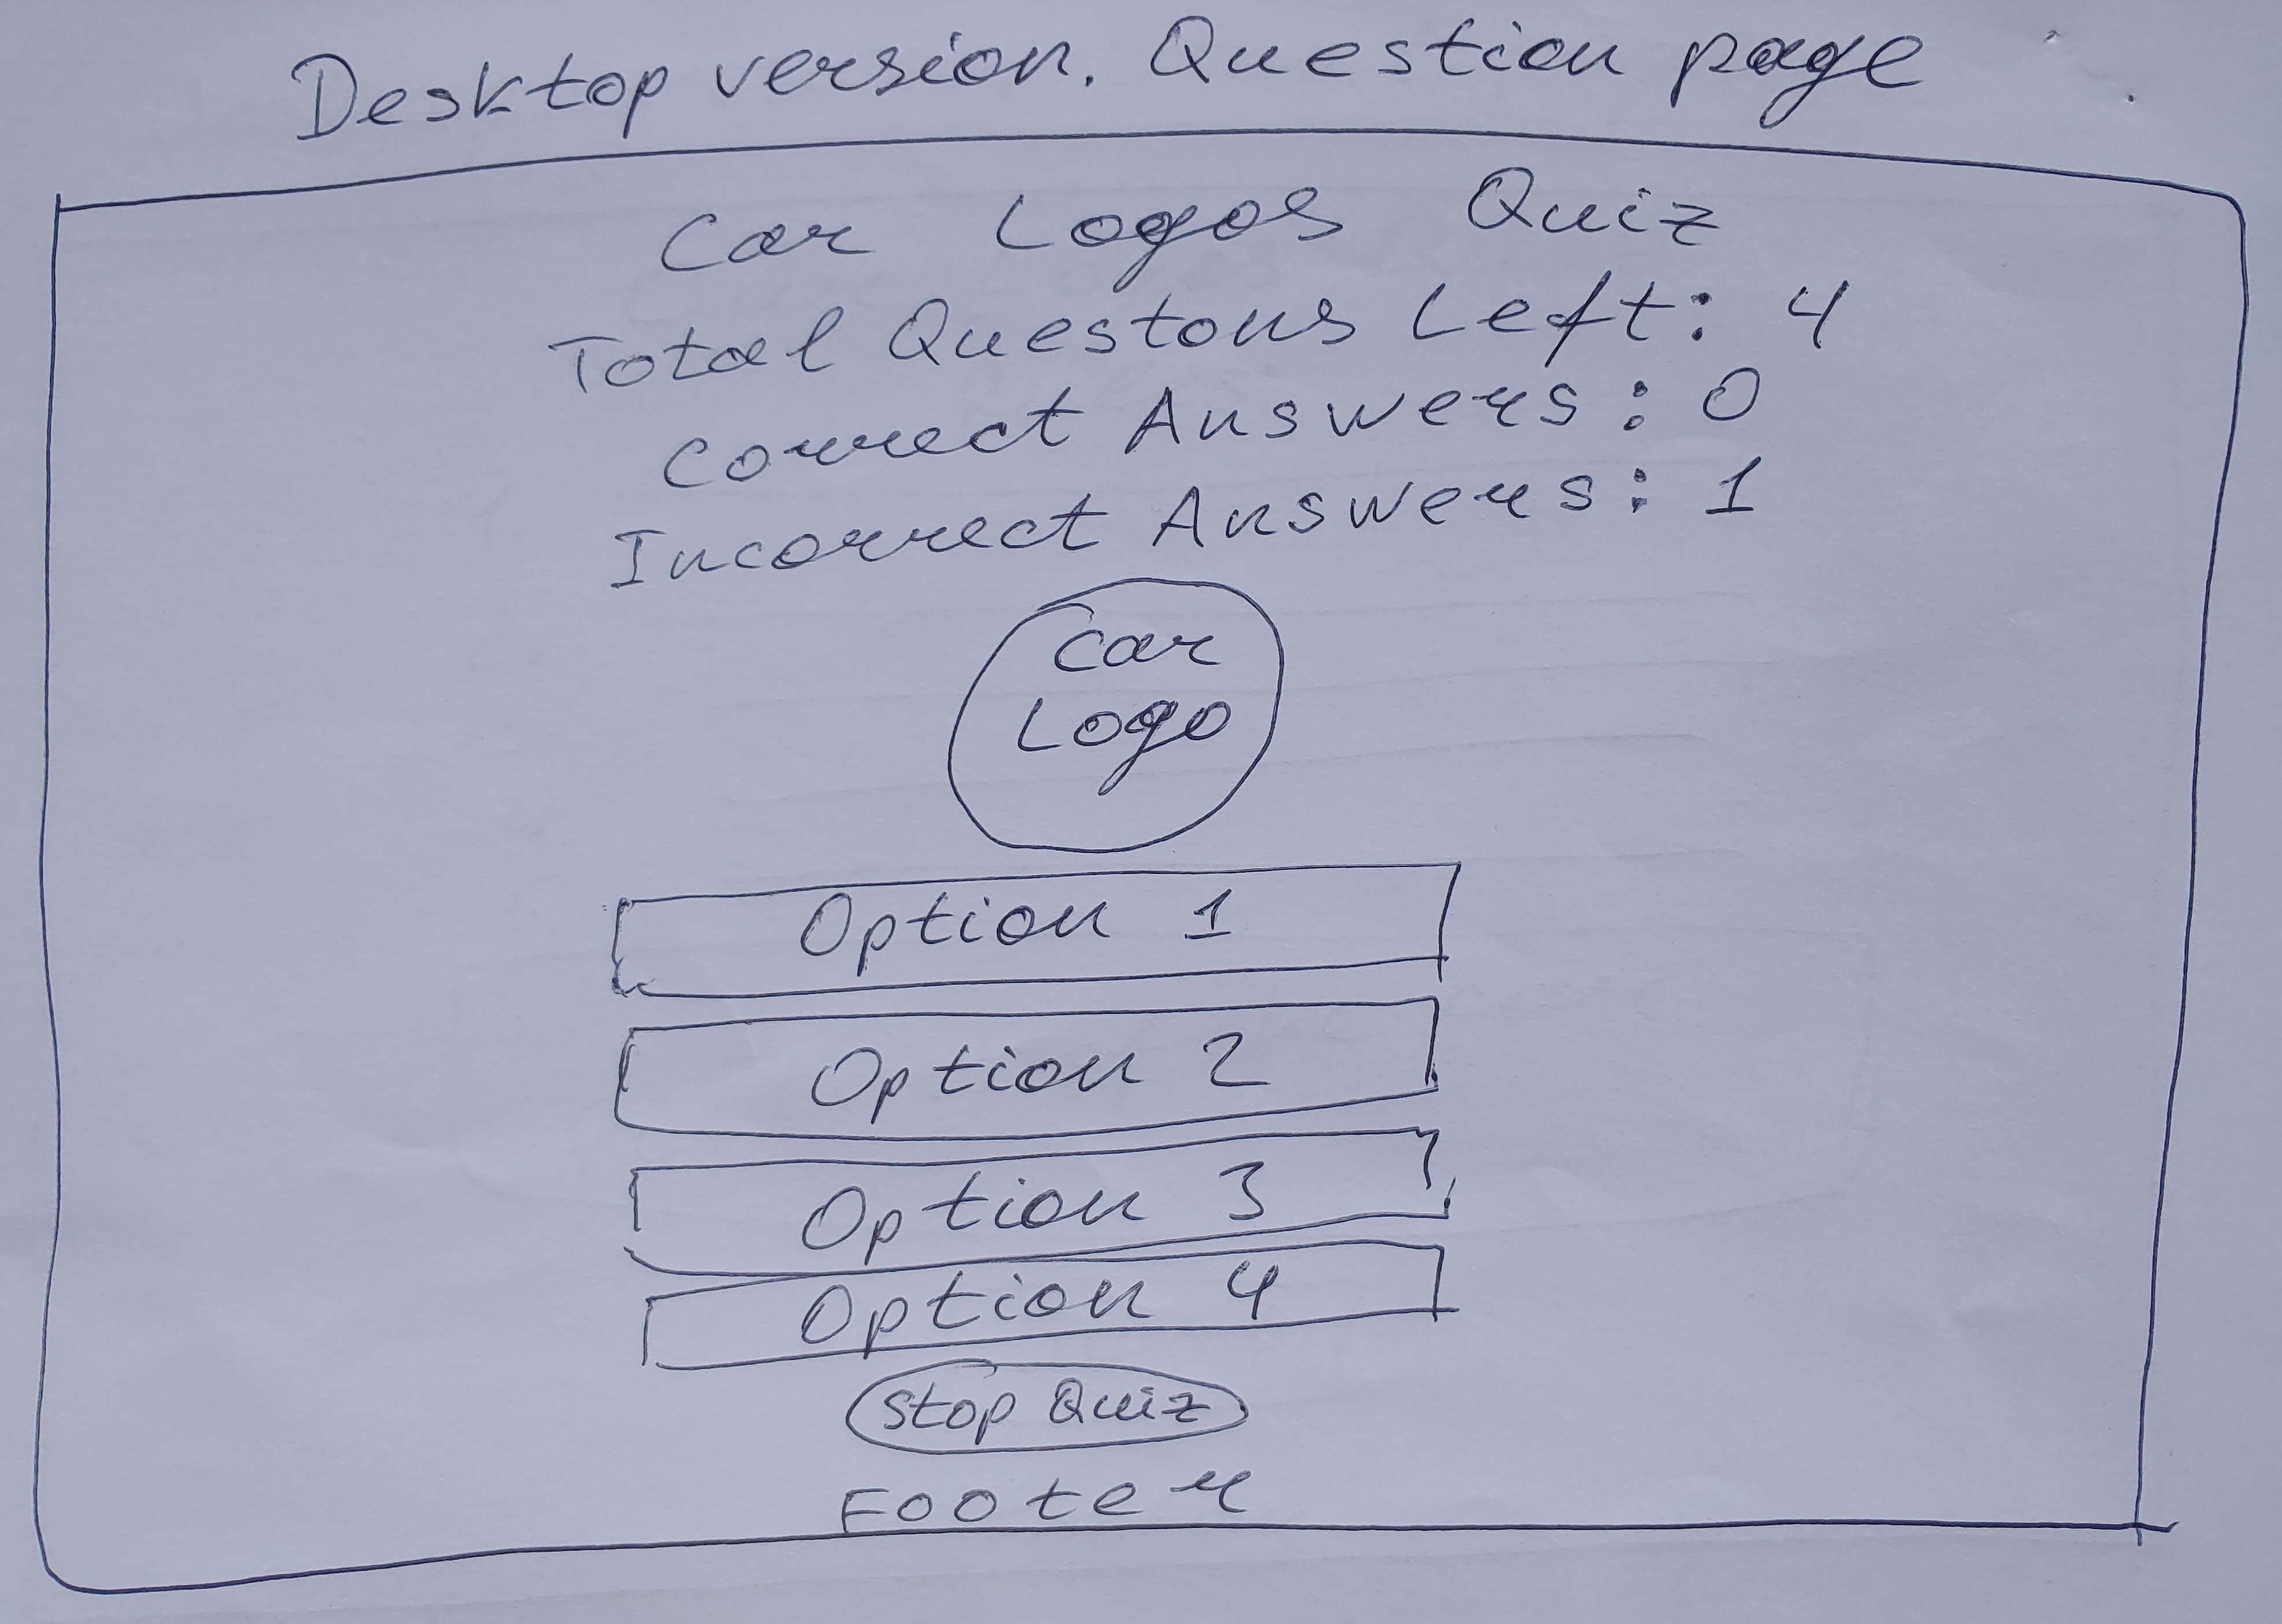 Desktop version. Question page
Car Logos Quiz
Total Questons Left: 4
Correct Answers: 0
Incorrect Answers: 1
Car
Logo
Option 1
Option 2
Option 3
Option 4
Stop Quiz
Footer